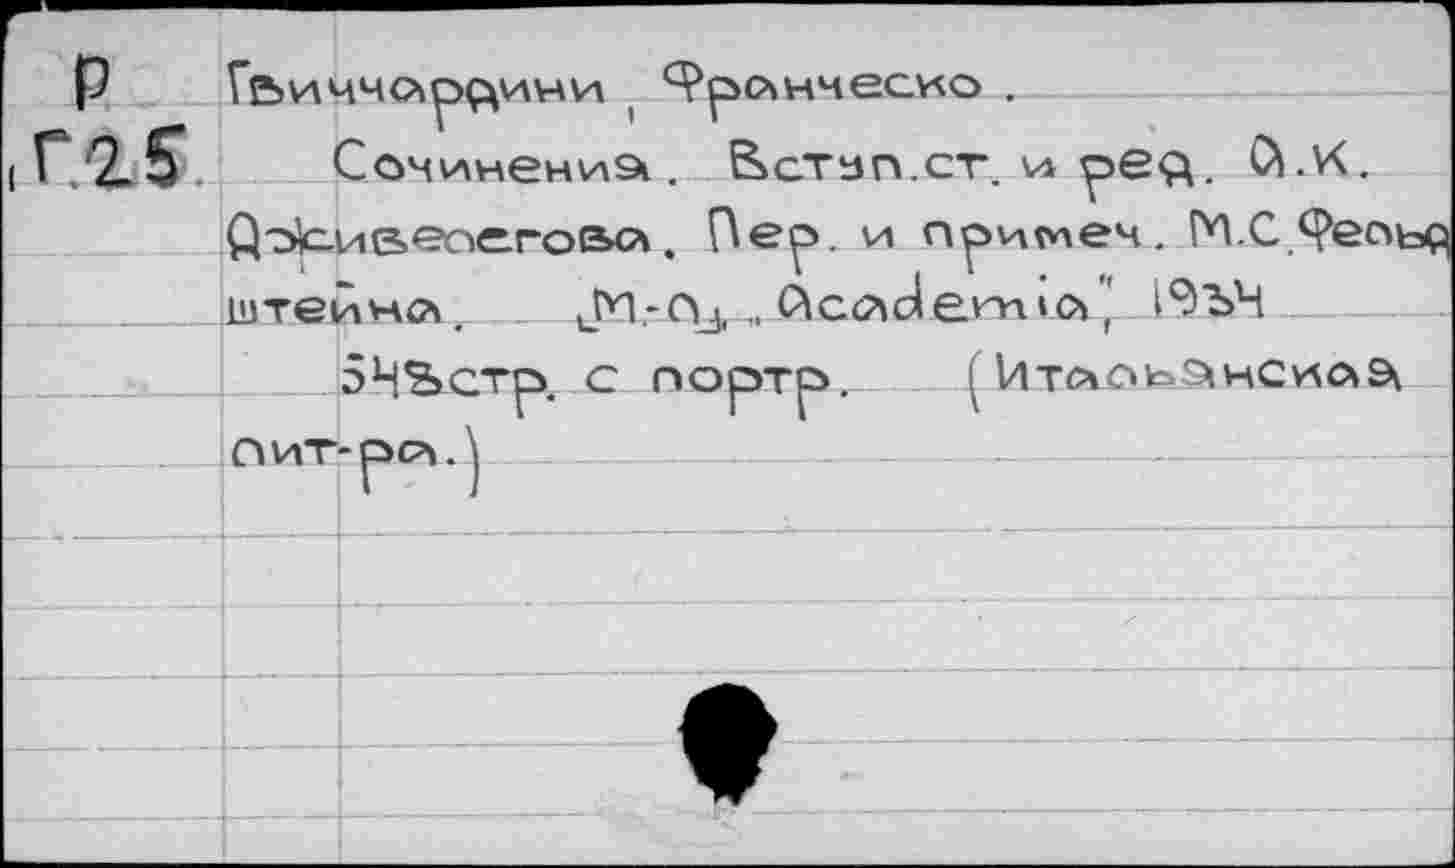 Р Гвиччардини, Франческо.
Г.25 Сочинения. Вступ.ст. и ред. А.К.
Дживелегова. Пер. и примеч. М.С.Фельд
штейна. М.-Л., „Academia", 1934
543стр. с портр. (Итальянская
лит-ра.)